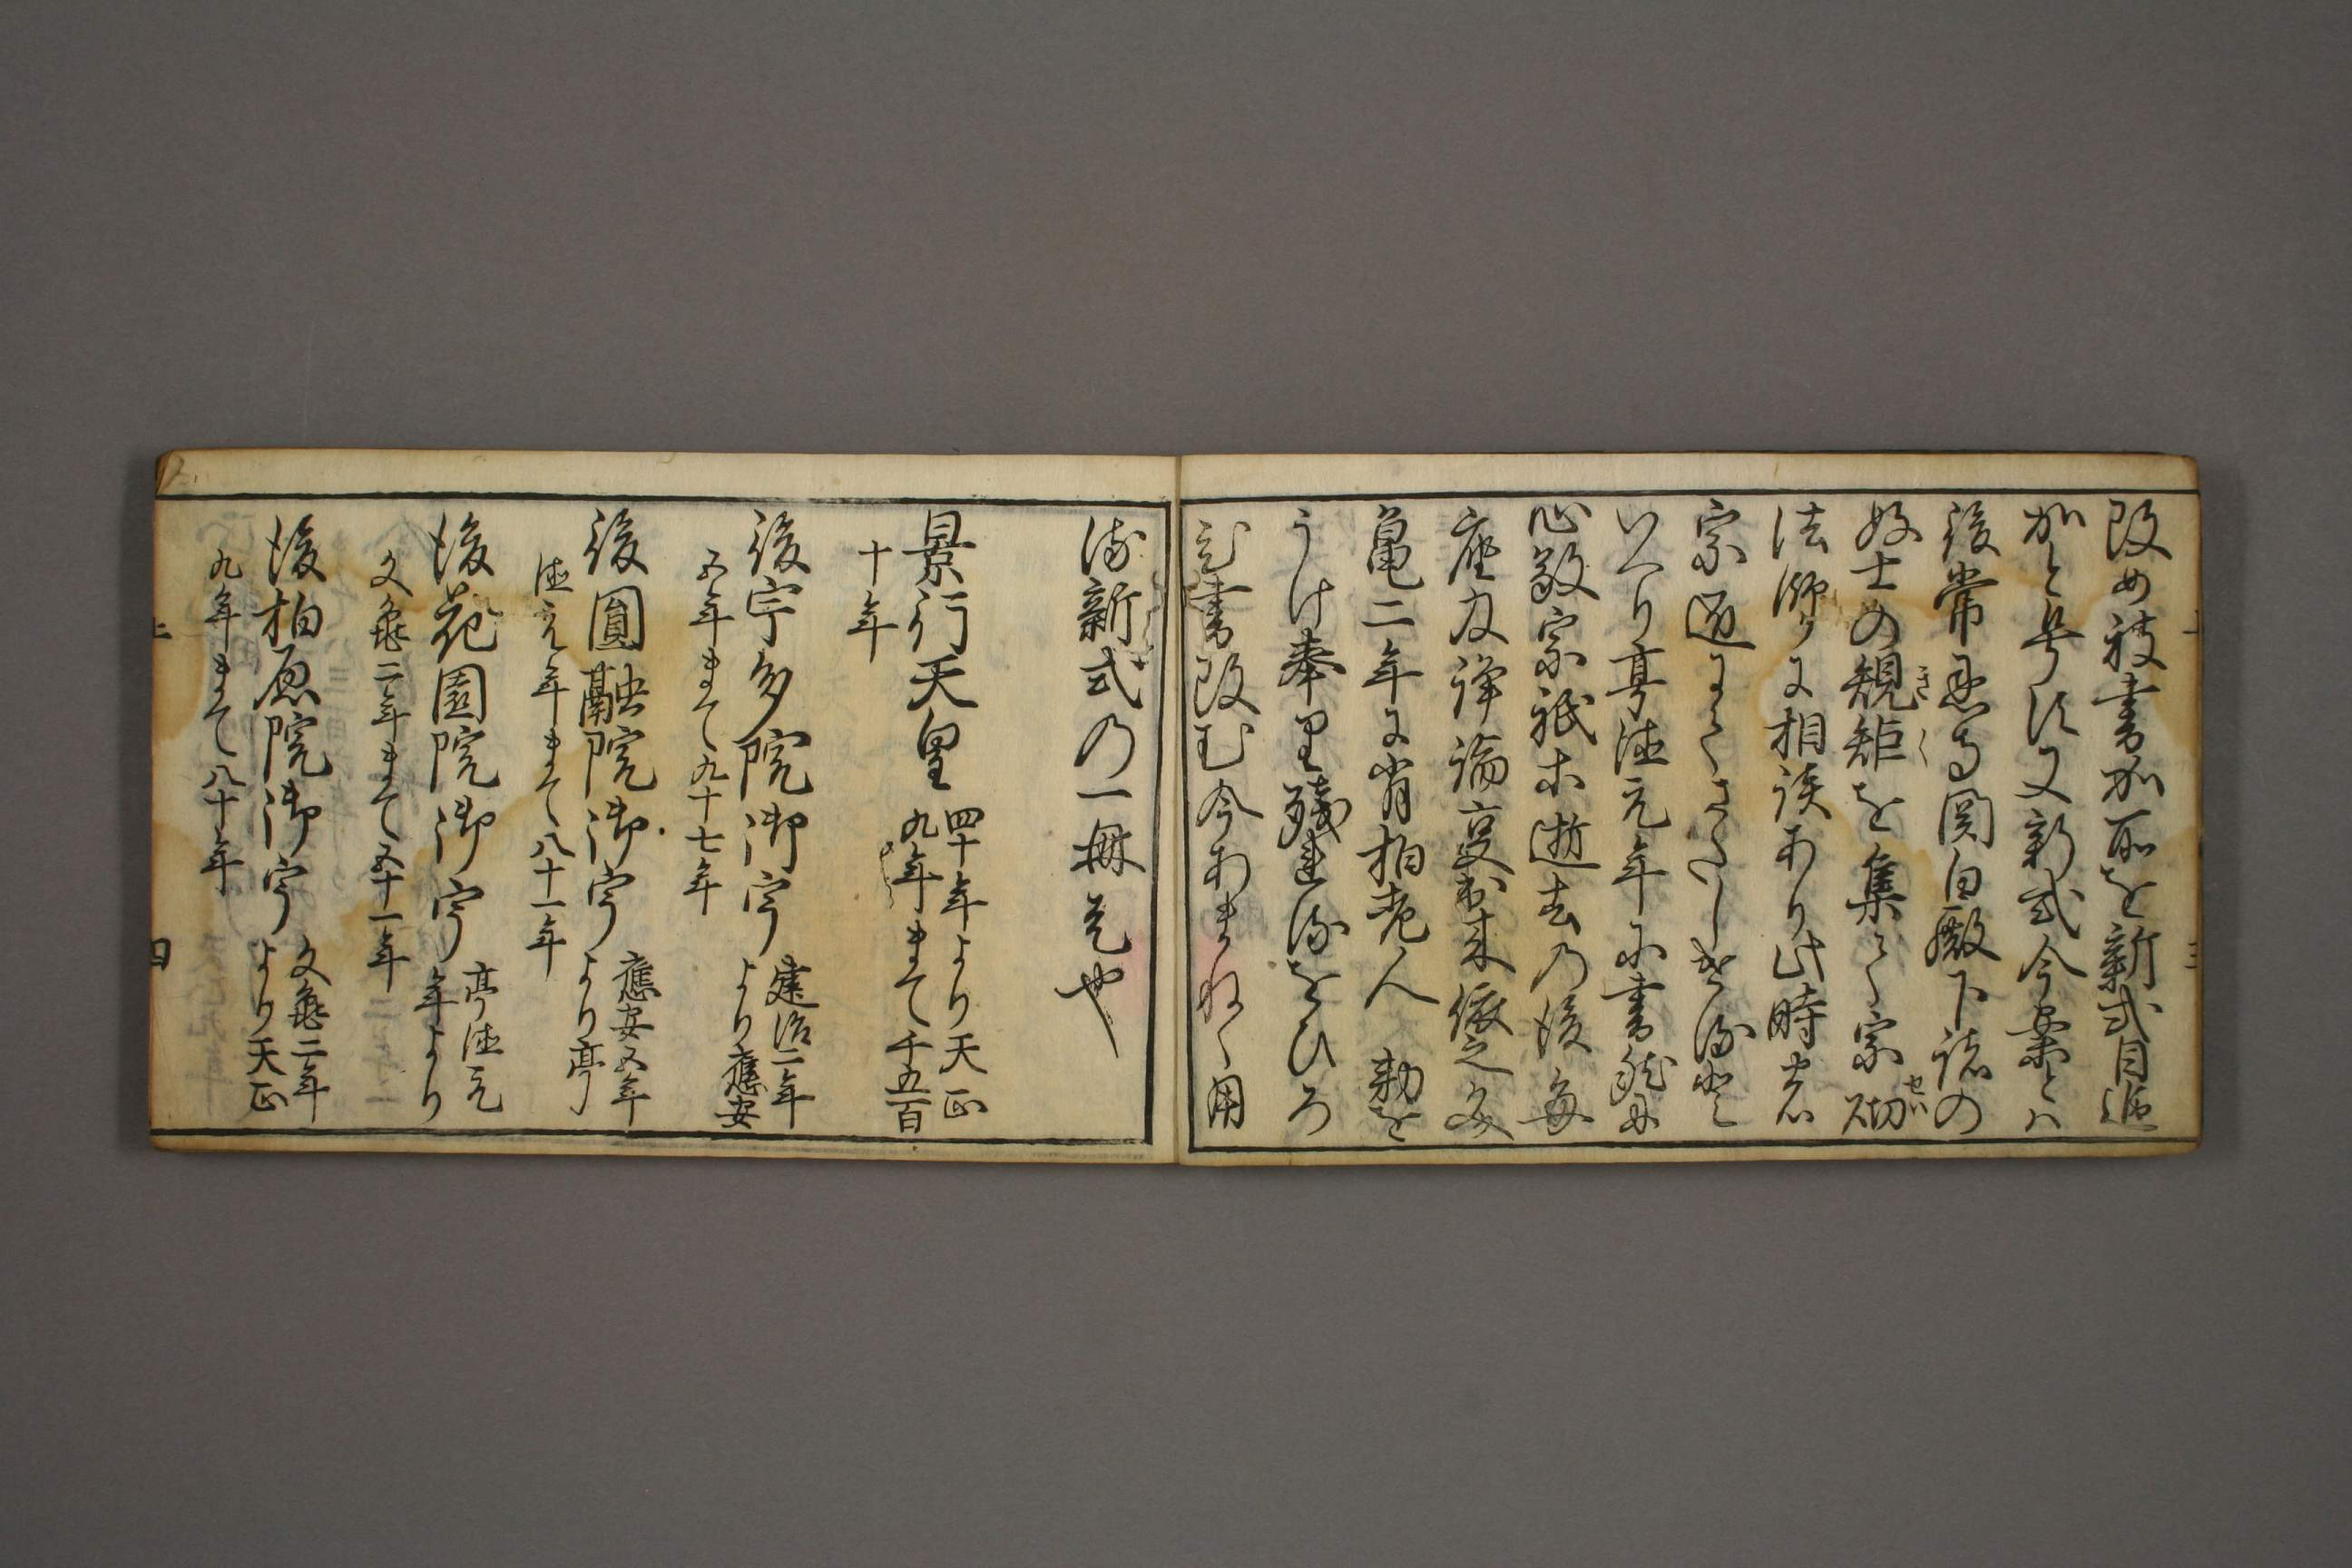 改め被書加所を新式目追
加と号す又新式今案とハ
後常恩寺関白殿下諸の
好士の規矩を集て宗砌
法師に相談ありし時
宗
いへり享徳元年に書
心敬宗祇等逝去の後毎
座及諍論
亀二年に肖柏老人 勅を
うけ奉り残をひろ
ひ書改む今あまねく用
る新式の一冊是也
景行天皇 四十年より天正
九年まて千五百
十年
後宇多院御宇 建治二年
より應安
五年まて九十七年
後圓融院御宇 應安五年
より享
徳元年まて八十一年
後花園院御宇 享徳元
年より
文亀二年まて五十一年
後柏原院御宇 文亀二年
より天正
九年まて八十年
上 四